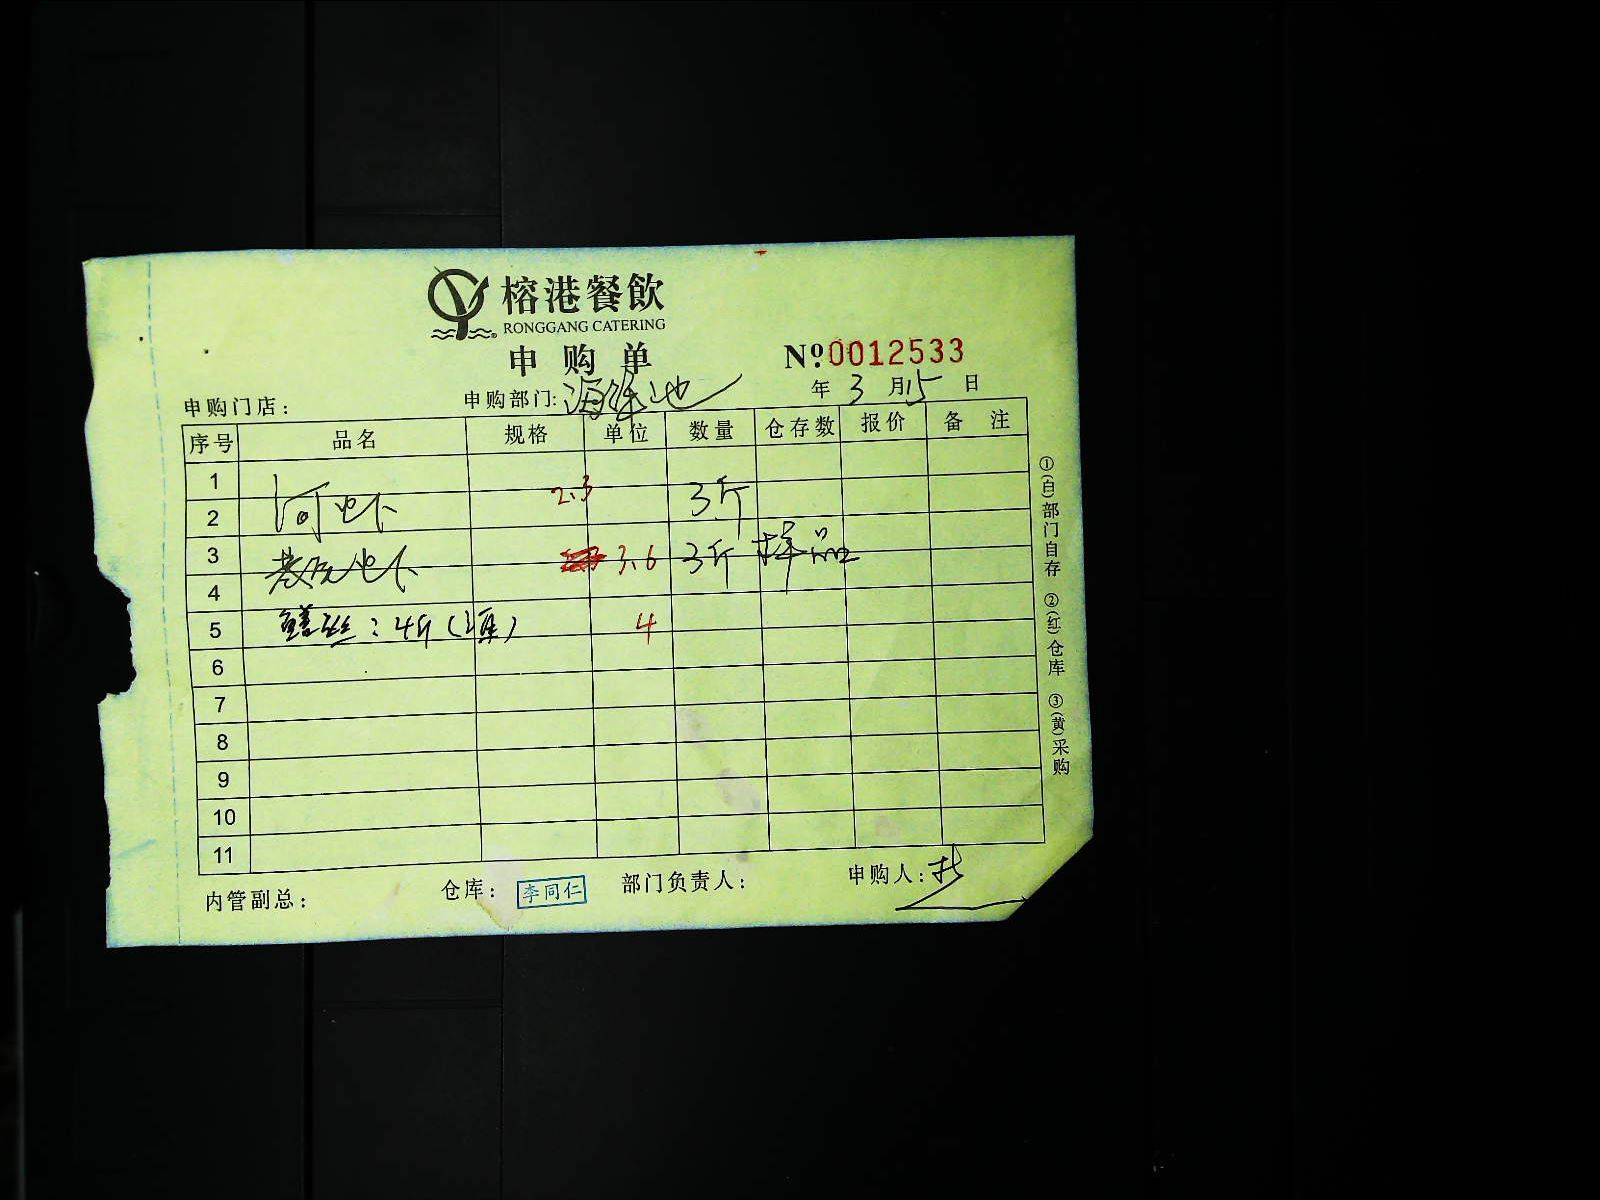 榕港餐飲
RONGGANG CATERING
申购单
№0012533
年 3 月 15 日
申购门店：
申购部门：海鲜池
序号 品名 规格 单位 数量 仓存数 报价 备 注
1
2 河虾 2.3 3斤
3 虾 3.6 3斤 样品
4
5 鳝丝：4斤 4
6
7
8
9
10
11
内管副总： 仓库：李同仁 部门负责人： 申购人：
①(白)部门自存 ②(红)仓库 ③(黄)采购